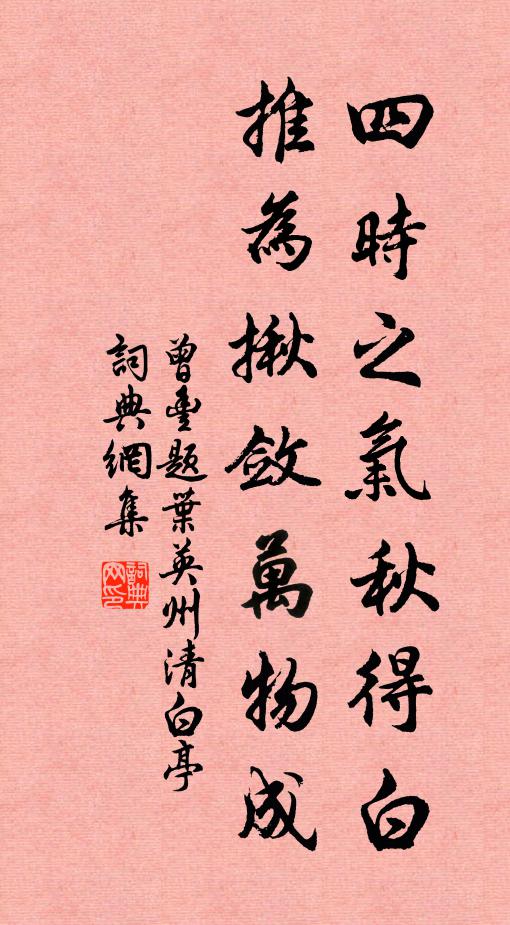 四時之氣秋得白
推為揪斂萬物成
曾豐題葉英州清白亭
詞典網集
詞典网印